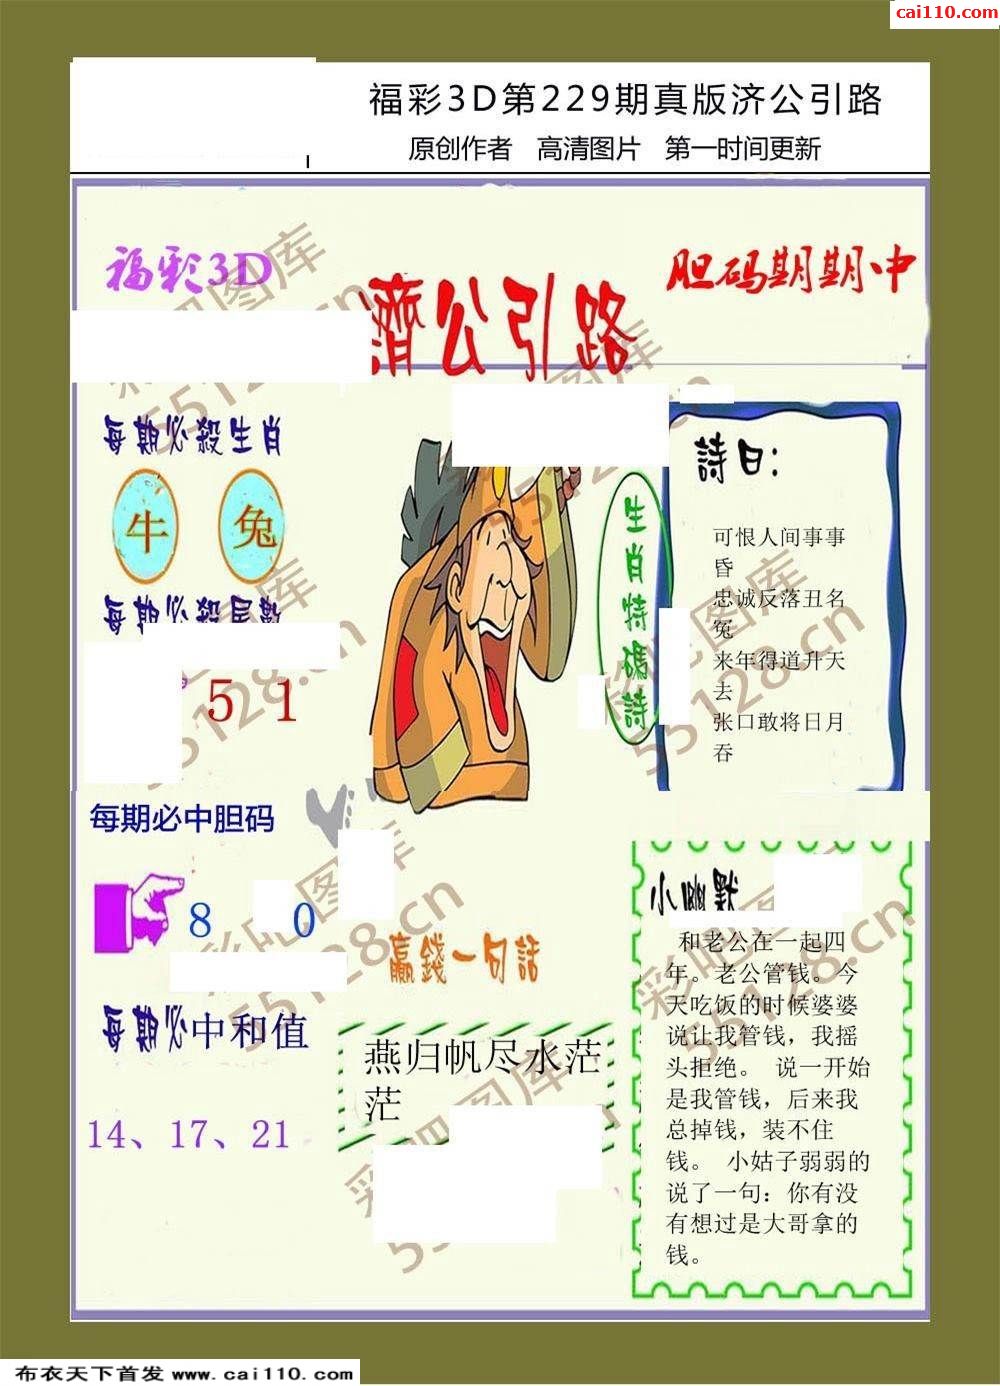 cai110.com
福彩3D第229期真版济公引路
原创作者 高清图片 第一时间更新
福彩3D
濟公引路
胆码期期中
每期必殺生肖
牛 兔
每期必殺尾數
5 1
每期必中胆码
8 0
每期必中和值
14、17、21
生肖特碼詩
詩曰:
可恨人间事事
昏
忠诚反落丑名
冤
来年得道升天
去
张口敢将日月
吞
赢錢一句話
燕归帆尽水茫
茫
小幽默
和老公在一起四
年。老公管钱。今
天吃饭的时候婆婆
说让我管钱，我摇
头拒绝。 说一开始
是我管钱，后来我
总掉钱，装不住
钱。 小姑子弱弱的
说了一句：你有没
有想过是大哥拿的
钱。
彩吧图库
55128.cn
布衣天下首发 www.cai110.com